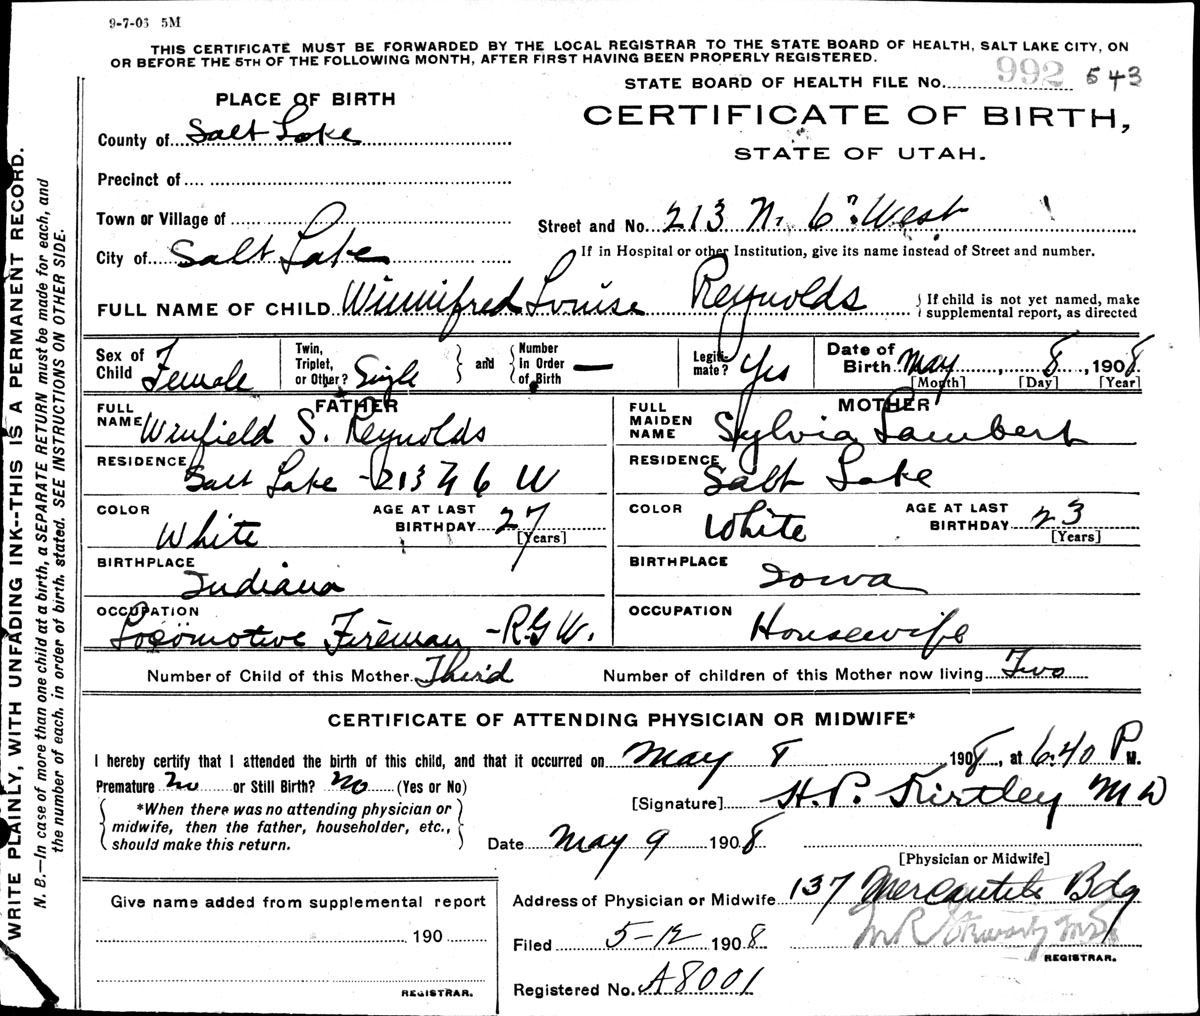 9-7-06 5M
THIS CERTIFICATE MUST BE FORWARDED BY THE LOCAL REGISTRAR TO THE STATE BOARD OF HEALTH, SALT LAKE CITY, ON
OR BEFORE THE 5TH OF THE FOLLOWING MONTH, AFTER FIRST HAVING BEEN PROPERLY REGISTERED.
STATE BOARD OF HEALTH FILE No. 992 543
PLACE OF BIRTH
CERTIFICATE OF BIRTH,
STATE OF UTAH.
County of Salt Lake
Precinct of
Town or Village of
Street and No. 213 N. 6" West
City of Salt Lake
If in Hospital or other Institution, give its name instead of Street and number.
FULL NAME OF CHILD Winnifred Louise Reynolds
If child is not yet named, make
supplemental report, as directed
Sex of
Child Female
Twin,
Triplet,
or Other? Single
and
Number
In Order
of Birth —
Legiti-
mate? Yes
Date of
Birth May 8, 1908
[Month] [Day] [Year]
FATHER
FULL
NAME Winfield S. Reynolds
RESIDENCE
Salt Lake - 213 N 6 W
COLOR
White
AGE AT LAST
BIRTHDAY 27
[Years]
BIRTHPLACE
Indiana
OCCUPATION
Locomotive Fireman - R.G.W.
MOTHER
FULL
MAIDEN
NAME Sylvia Lambert
RESIDENCE
Salt Lake
COLOR
White
AGE AT LAST
BIRTHDAY 23
[Years]
BIRTHPLACE
Iowa
OCCUPATION
Housewife
Number of Child of this Mother Third
Number of children of this Mother now living Two
CERTIFICATE OF ATTENDING PHYSICIAN OR MIDWIFE*
I hereby certify that I attended the birth of this child, and that it occurred on May 8, 1908, at 6:40 P M.
Premature? No or Still Birth? No (Yes or No)
*When there was no attending physician or
midwife, then the father, householder, etc.,
should make this return.
[Signature] H. P. Kirtley M D
Date May 9 1908
[Physician or Midwife]
Address of Physician or Midwife 137 Mercantile Bdg
Give name added from supplemental report
190
REGISTRAR.
Filed 5-12 1908
REGISTRAR.
Registered No. A8001
WRITE PLAINLY, WITH UNFADING INK--THIS IS A PERMANENT RECORD.
N. B.—In case of more than one child at a birth, a SEPARATE RETURN must be made for each, and
the number of each, in order of birth, stated. SEE INSTRUCTIONS ON OTHER SIDE.